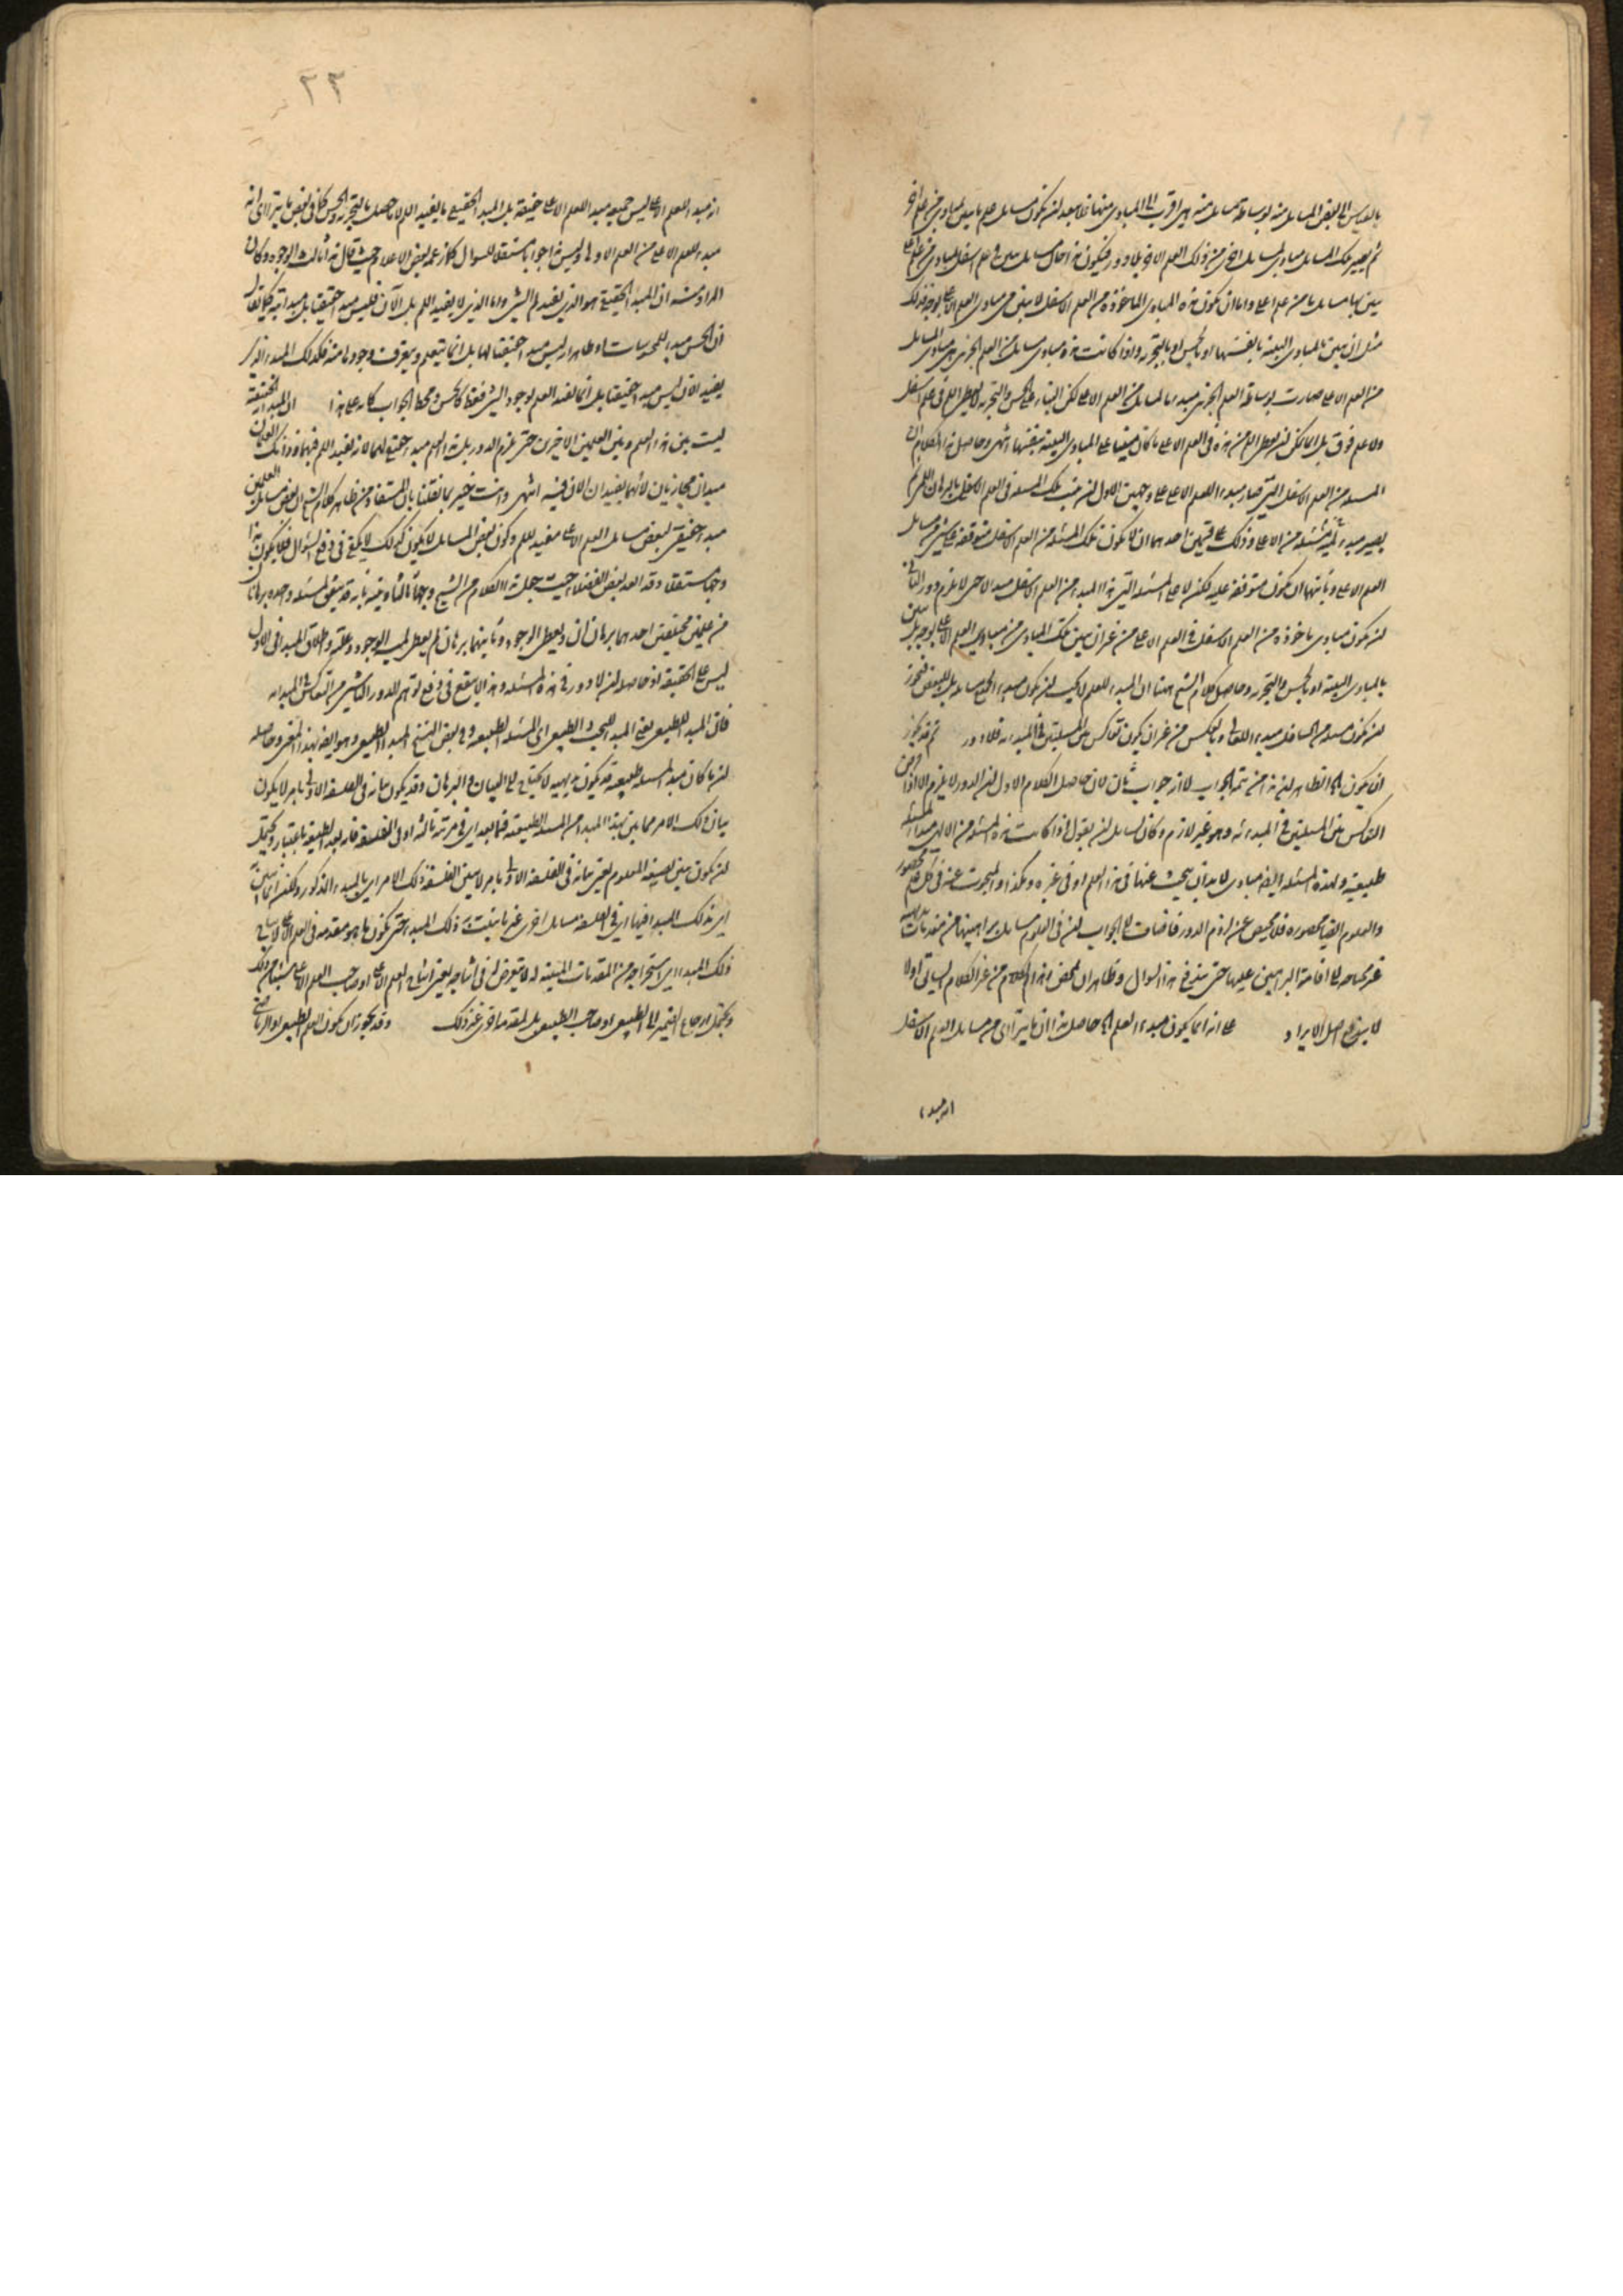 بالقياس الى بعض المسايل منه بوساطة مسايل منه هي اقرب الى المبادي منها فلا يبعد ان يكون مسايل علم ما يبين بمبادي من علم اخر
ثم يصير تلك المسايل مبادي لمسايل اخرى من ذلك العلم الاخر بلا دور فيكون هذا حال مسايل تبين في علم اسفل لمبادي من علم اعلى
يبين بها مسايل ما من علم اعلى واما ان يكون هذه المبادي الماخوذة من العلم الاسفل لا يبين من مبادي العلم الاعلى بوجه فذلك
مثل ان يبين بالمبادي البينة بانفسها او بالحس او بالتجربة واذا كانت هذه مبادي مسايل من العلم الجزئي هي مبادي المسايل
من العلم الاعلى صارت بوساطة العلم الجزئي مبدء لمسايل من العلم الاعلى لكن البناء على الحس والتجربة لا يعطي اللم في علم اسفل
ولا علم فوق بل انما يمكن ان يعطي اللم من هذه في العلم الاعلى ما كان مبنيا على المبادي البينة بنفسها انتهى وحاصل هذا الكلام ان
المسئلة من العلم الاسفل التي تصار مبدء للعلم الاعلى على وجهين الاول ان يثبت تلك المسئلة في العلم الاسفل بالبرهان اللمي ثم
يصير مبدء لمية مسئلة من الاعلى وذلك على قسمين احدهما ان لا يكون تلك المسئلة من العلم الاسفل متوقفة على شيء من مسايل
العلم الاعلى وثانيهما ان يكون متوقفة عليه لكن لا على المسئلة التي هذا المبدء من العلم الاسفل مبدء لها حتى لا يلزم دور الثاني
ان يكون مبادي ماخوذة من العلم الاسفل في العلم الاعلى من غير ان يبين تلك المبادي من مبادي العلم الاعلى بوجه بل يبين
بالمبادي البينة او بالحس والتجربة وحاصل كلام الشيخ ههنا ان المبدء للعلم لا يجب ان يكون مبدء لجميع مسايله بل للبعض فيجوز
ان يكون مسئلة من السافل مبدء للعالي وبالعكس من غير ان يكون تعاكس بين المسئلتين في المبدئية فلا دور ثم قد يجوز
ان يكون اه الظاهر ان هذا من تتمة الجواب لا انه جواب ثان لان حاصل الكلام الاول ان الدور لا يلزم الا اذا فرض
التعاكس بين المسئلتين في المبدئية وهو غير لازم وكان لسايل ان يقول اذا كانت هذه المسئلة من الالهي مبدء لمسئلة
طبيعية ولهذه المسئلة ايضا مبادي لا بد ان يبحث عنها في هذا العلم او في غيره وهكذا والمبحوث عنه في كل علم محصور
والعلوم ايضا محصورة فلا محيص عن لزوم الدور فاضاف الى الجواب ان في العلوم مسايل براهينها من مقدمات بديهية
غير محتاجة الى اقامة البراهين عليها حتى ينجر في هذا السؤال وظاهر ان محض هذا الكلام من غير الكلام السياتي اولا
لا يدفع اصل الايراد على انه انما يكون مبدء العلم اه حاصل هذا ان ما يتراءى من مسايل العلم الاسفل
انه مبدء
٣٣
انه مبدء للعلم الاعلى ليس جميعه مبدء للعلم الاعلى حقيقة بل المبدء الحقيقي ما يفيد اللم لا ما حصل بالتجربة والحس كما في بعض ما يتراءى انه
مبدء للعلم الاعلى من العلم الاولى وليس هذا جوابا مستقلا للسؤال كما زعمه بعض الاعلام حيث قال هذا ثالث الوجوه وكان
المراد منه ان المبدء الحقيقي هو الذي يفيد لم الشيء واما الذي لا يفيد اللم بل الان فليس مبدء حقيقيا بل مبدئيته كما يقال
ان الحس مبدء للمحسوسات او ظاهر انه ليس مبدء حقيقيا لها بل انما يتعلم ويعرف وجودها منه فكذلك المبدء الذي
يفيد الان ليس مبدء حقيقيا بل انما يفيد العلم بوجود الشيء فقط كالحس ومحط الجواب كانه على هذا ان المبدئية الحقيقية
ليست بين هذا العلم وبين العلمين الاخيرين حتى يلزم الدور بل هذا العلم مبدء حقيقي لهما لانه يفيد اللم فيهما وذانك العلمان
مبدآن مجازيان لانهما يفيدان الان فيه انتهى وانت خبير بما نقلنا بان المستفاد من ظاهر كلام الشيخ ان بعض مسايل العلمين
مبدء حقيقي لبعض مسايل العلم الاعلى مفيد للم وكون بعض المسايل لا يكون كذلك لا يكفي في دفع السؤال فلا يكون هذا
وجها مستقلا وقد العد بعض الفضلاء حيث جعل هذا الكلام من الشيخ وجها ثالثا وبينه بانه قد يتفق لمسئلة واحدة برهانان
من علمين مختلفين احدهما برهان ان ويعطي الوجود وثانيهما برهان لم يعطي لمية الوجود وعلته واطلاق المبدء في الاول
ليس على الحقيقة اذ حاصله ان لا دور في هذه المسئلة وهذا لا ينفع في دفع توهم الدور الناشي من التعاكس في المبدئية
فان المبدء للطبيعي يعني المبدء للمبحث الطبيعي اي المسئلة الطبيعية وفي بعض النسخ المبدء الطبيعي وهو ايضا بهذا المعنى وحاصله
ان ما كان مبدء لمسئلة طبيعية قد يكون بديهية لا يحتاج الى البيان والبرهان وقد يكون بيانه في الفلسفة الاولى بامر لا يكون
بيان ذلك الامر مما يبين بهذا المبدء من المسئلة الطبيعية فيما بعد اي في مرتبة ثالثة او في الفلسفة فانه بعد الطبيعة باعتبار ويحتمل
ان يكون يبين بصيغة المعلوم يعني بيانه في الفلسفة الاولى بامر لا يبين الفلسفة ذلك الامر اي بالمبدء المذكور ولكن انما يبين به
اي بذلك المبدء فيها اي في الفلسفة مسايل اخرى غير ما يثبت به ذلك المبدء حتى يكون ما هو مقدمة في العلم الاعلى لانتاج
ذلك المبدء اي استخراجه من المقدمات المبينة له لا يتعرض له في انتاجه يعني انتاج العلم الاعلى او صاحب العلم الاعلى شيئا من ذلك
ويحتمل ارجاع الضمير الى الطبيعي او صاحب الطبيعي بل له مقدمة اخرى غير ذلك وقد يجوز ان يكون العلم الطبيعي او الرياضي